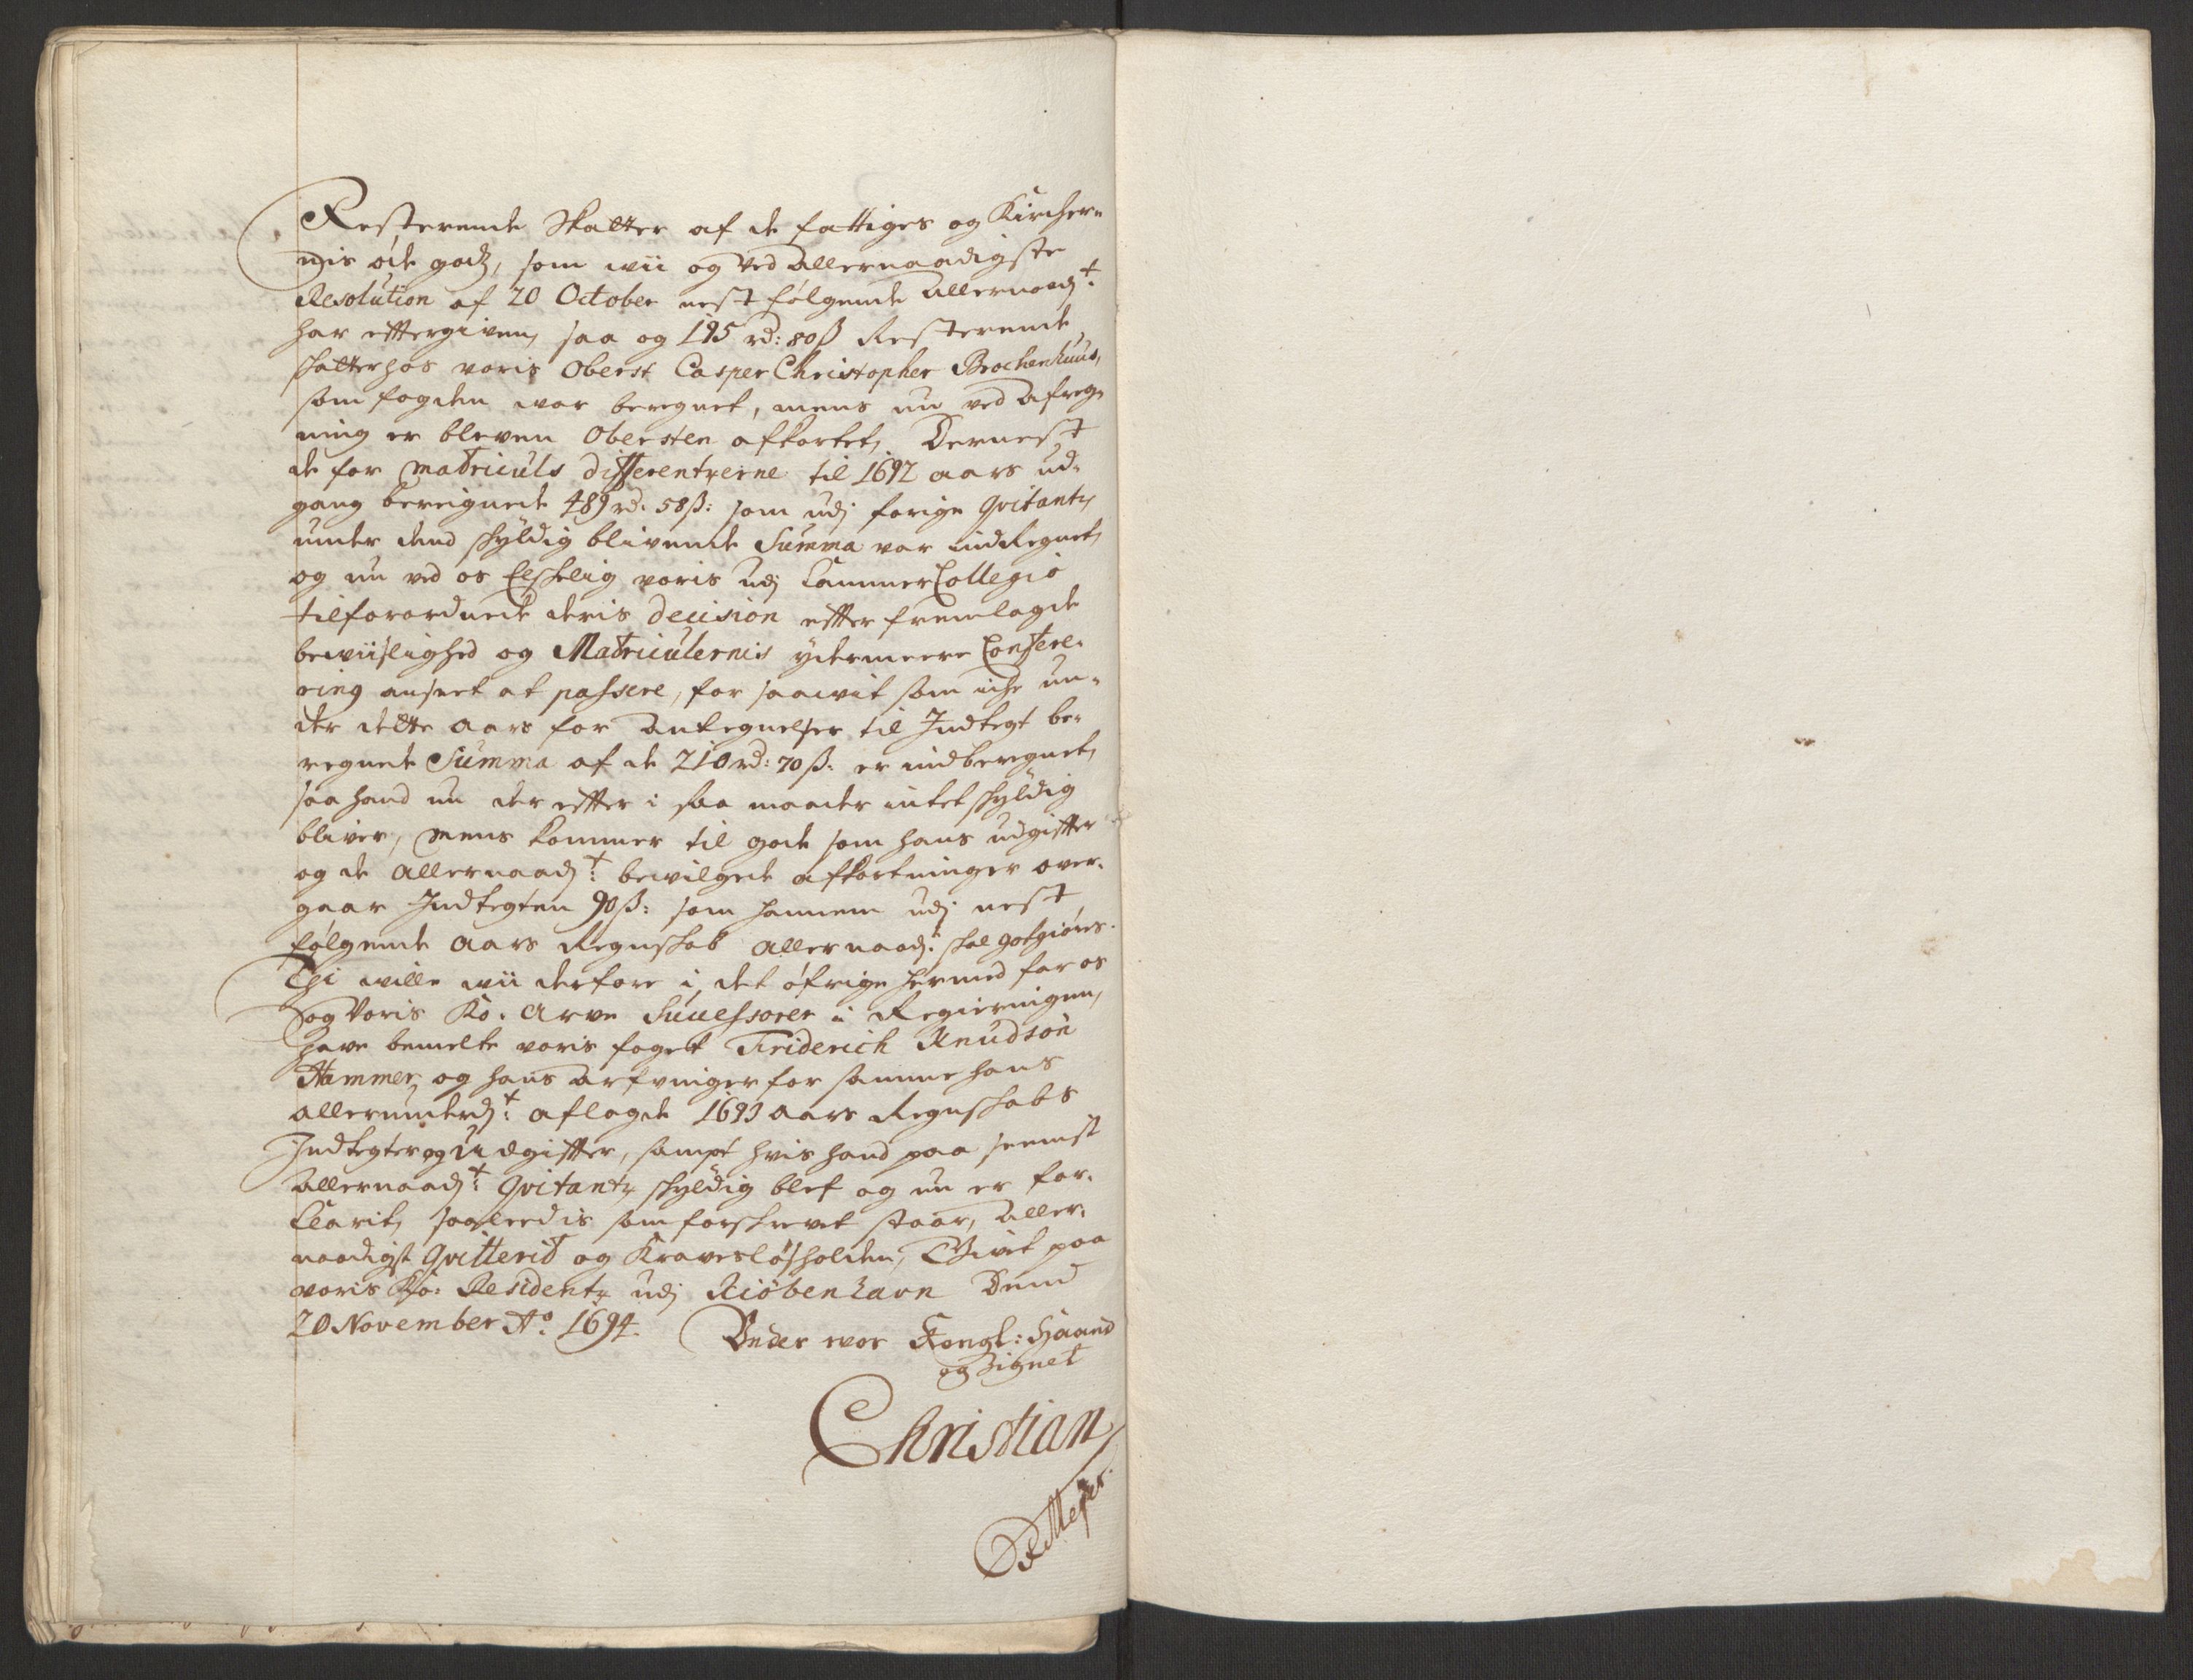 Resterende Skatter af de fattiges og Kircher-
nis øde godz, som wii og ved allernaadigste
Resolution af 20 October nest følgende allernaadt:
har efftergiven, saa og 195 rd: 80 ß Resterende
skatter hos voris Oberst Casper Christopher Brochenhuus,
som fogden war beregnet, mens nu ved Afreg-
ning er bleven Obersten afkortet, Dernest
de for Matriculs differentzerne til 1692 aars ud-
gang bereignede 489 rd: 58 ß: som udj forige Qvitantz
under dend skyldig blivende Summa var indRegnet,
og nu ved os Elskelig voris udj CammerCollegio
tilforordnede deris decision effter fremlagde
bewiislighed og Matriculernis ydermeere Confere-
ring anseet at passere, for saawit som iche un-
der dette aars for Antegnelser til Indtegt be-
regnede Summa af de 210 rd: 70 ß: er indberegnet,
saa hand nu der effter i saa maader intet skyldig
bliver, mens kommer til gode som hans udgiffter
og de allernaadt: bewilgede afkortninger over-
gaar Indtegten 90 ß: som hannem udj nest
følgende Aars Regnskab allernaadt: skal godgiøres.
Thi wille wii derfore i det øfrige hermed for os
og Voris Ko: Arve Successorer i Regieringen,
have bemelte voris foget Friderich Knudsøn
Hammer, og hans Arfvinger for samme hans
allerunderdt: aflagde 1693 aars Regnskabs
Indtegter og Udgiffter, sampt hvis hand paa seenist
allernaadt: Qvitantz skyldig blef og nu er for-
Clarit, saaleedis som forskrevet staar, Aller-
naadigst Qvitterit og Kravesløsholden, Givet paa
voris Ko: Residentz udj Kiøbenhavn Dend
20 November Ao: 1694.
Under wor Kongl: Haand
og Signet
Christian
R Meÿer